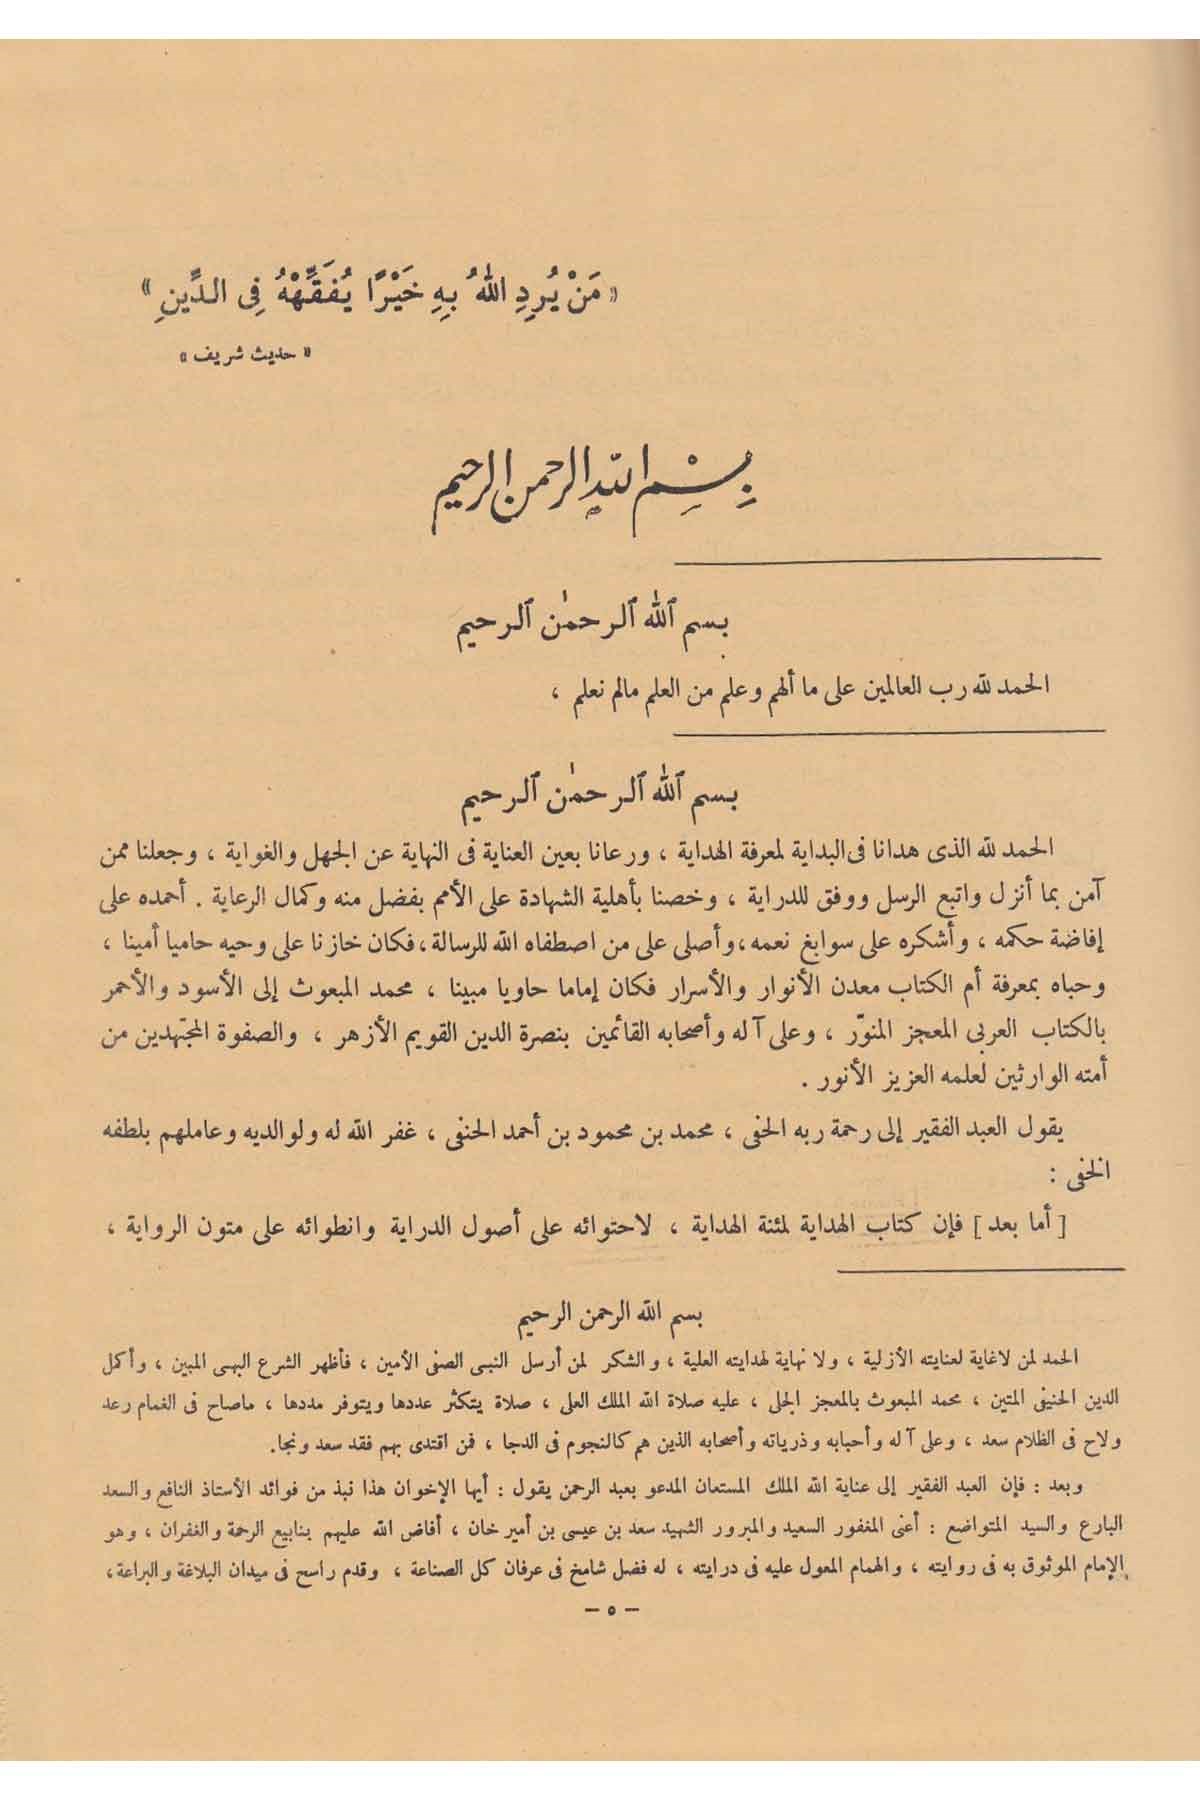 « مَنْ يُرِدِ اللهُ بِهِ خَيْرًا يُفَقِّهْهُ فِى الدِّينِ »
« حديث شريف »
بِسْمِ الله الرحمن الرحيم
بسم ٱللّٰه ٱلرحمٰن ٱلرحيم
الحمد لله رب العالمين على ما ألهم وعلم من العلم مالم نعلم ،
بسم ٱللّٰه ٱلرحمٰن ٱلرحيم
الحمد لله الذى هدانا فى البداية لمعرفة الهداية ، ورعانا بعين العناية فى النهاية عن الجهل والغواية ، وجعلنا ممن
آمن بما أنزل واتبع الرسل ووفق للدراية ، وخصنا بأهلية الشهادة على الأمم بفضل منه وكمال الرعاية . أحمده على
إفاضة حكمه ، وأشكره على سوابغ نعمه ، وأصلى على من اصطفاه الله للرسالة ، فكان خازنا على وحيه حاميا أمينا ،
وحباه بمعرفة أم الكتاب معدن الأنوار والأسرار فكان إماما حاويا مبينا ، محمد المبعوث إلى الأسود والأحمر
بالكتاب العربى المعجز المنوّر ، وعلى آله وأصحابه القائمين بنصرة الدين القويم الأزهر ، والصفوة المجتهدين من
أمته الوارثين لعلمه العزيز الأنور .
يقول العبد الفقير إلى رحمة ربه الحفى ، محمد بن محمود بن أحمد الحنفى ، غفر الله له ولوالديه وعاملهم بلطفه
الخفى :
[ أما بعد ] فإن كتاب الهداية لمئنة الهداية ، لاحتوائه على أصول الدراية وانطوائه على متون الرواية ،
بسم الله الرحمن الرحيم
الحمد لمن لاغاية لعنايته الأزلية ، ولا نهاية لهدايته العلية ، والشكر لمن أرسل النبى الصفى الأمين ، فأظهر الشرع البهى المبين ، وأكمل
الدين الحنيفى المتين ، محمد المبعوث بالمعجز الجلى ، عليه صلاة الله الملك العلى ، صلاة يتكثر عددها ويتوفر مددها ، ماصاح فى الغمام رعد
ولاح فى الظلام سعد ، وعلى آله وأحبابه وذرياته وأصحابه الذين هم كالنجوم فى الدجا ، فمن اقتدى بهم فقد سعد ونجا.
وبعد : فإن العبد الفقير إلى عناية الله الملك المستعان المدعو بعبد الرحمن يقول : أيها الإخوان هذا نبذ من فوائد الأستاذ النافع والسعد
البارع والسيد المتواضع : أعنى المغفور السعيد والمبرور الشهيد سعد بن عيسى بن أمير خان ، أفاض الله عليهم بنابيع الرحمة والغفران ، وهو
الإمام الموثوق به فى روايته ، والهمام المعول عليه فى درايته ، له فضل شامخ فى عرفان كل الصناعة ، وقدم راسخ فى ميدان البلاغة والبراعة ،
– ٥ –